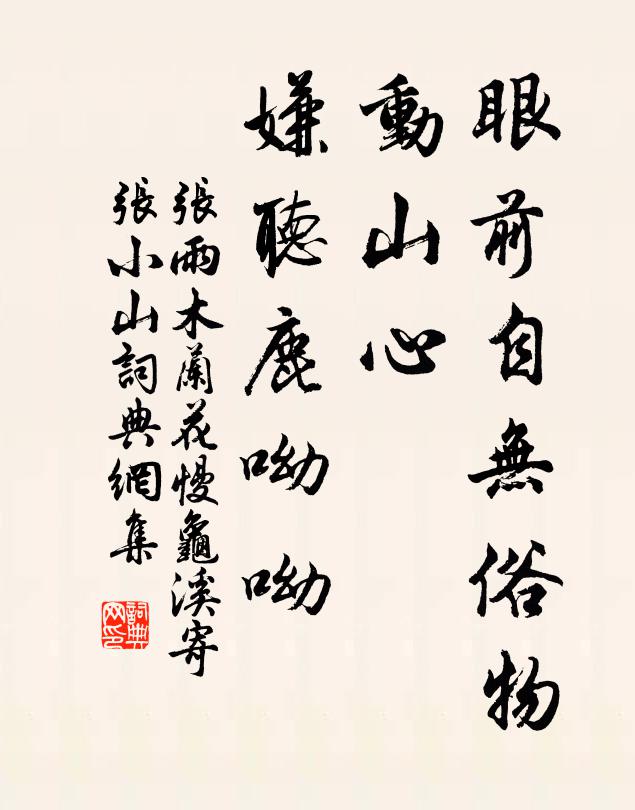 眼前自無俗物
動山心
嫌聽鹿呦呦
張雨木蘭花慢龜溪寄
張小山詞典網集
詞典
网印